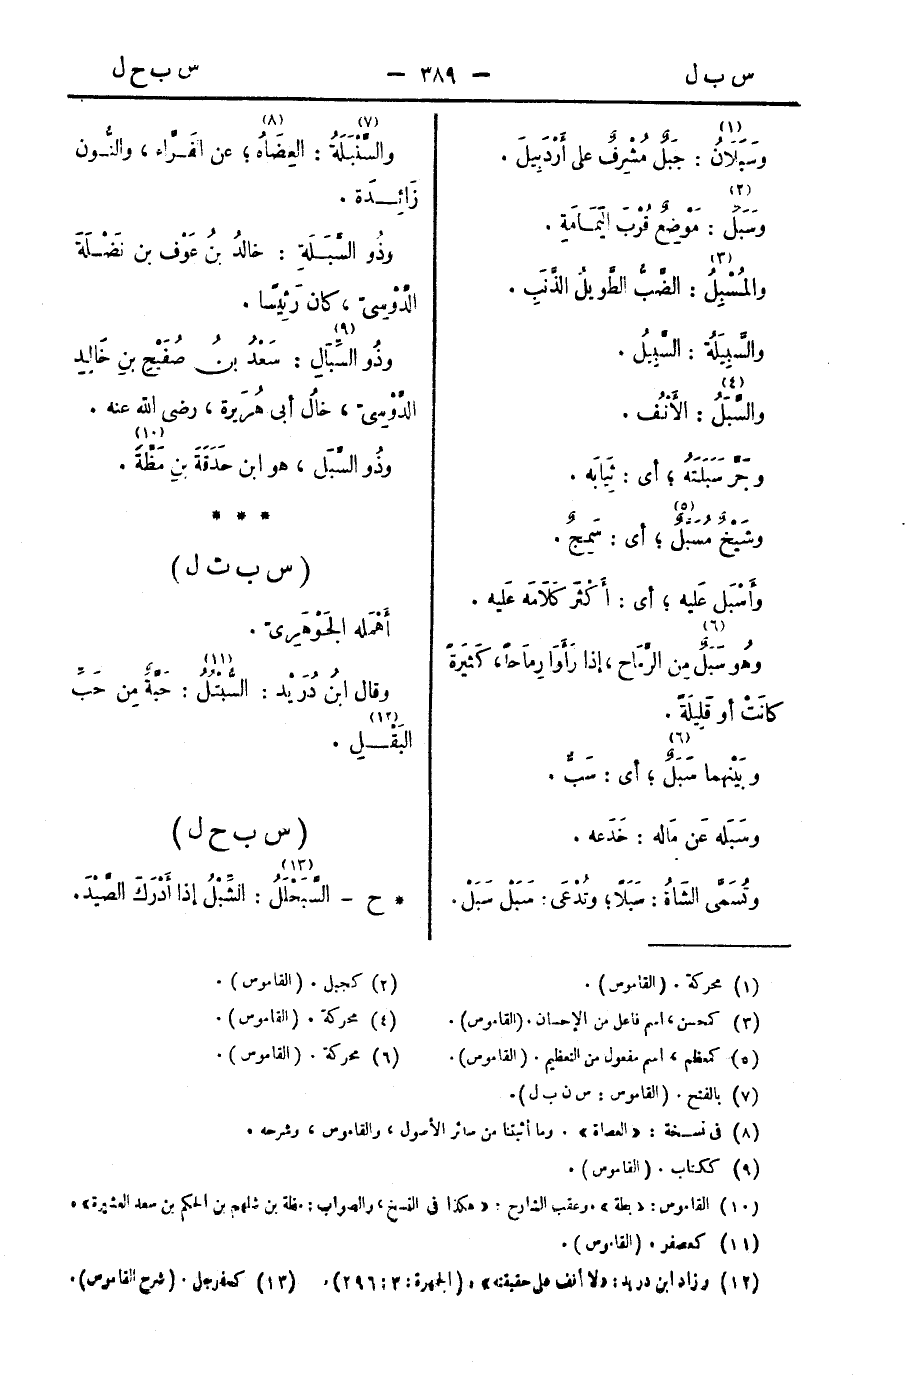 س ب ل
— ٣٨٩ —
س ب ح ل
(١)
وسَبَلَانُ : جَبَلٌ مُشْرِفٌ على أَرْدَبِيلَ .
(٢)
وسَبَلُ : مَوْضِعٌ قُرْبَ اليَمَامَةِ .
(٣)
والمُسْبِلُ : الضَّبُّ الطَّوِيلُ الذَّنَبِ .
والسَّبِيلَةُ : السَّبِيلُ .
(٤)
والسَّبَلُ : الأَنْف .
وجَرَّ سَبَلَتَهُ ؛ أى : ثِيَابَه .
(٥)
وشَيْخٌ مُسَبَّلٌ ؛ أى : سَمِجٌ .
وأَسْبَل عَليه ؛ أى : أَكْثَرَ كَلَامَه عَليه .
(٦)
وهُو سَبَلٌ مِن الرِّمَاح ، إذا رَأَوَا رِمَاحاً ، كَثِيرَةً
كانَتْ أو قَلِيلَةً .
(٦)
وبَيْنهما سَبَلٌ ؛ أى : سَبٌّ .
وسَبَله عَن مَاله : خَدَعه .
وتُسَمَّى الشَّاةُ : سَبَلًا ؛ وتُدْعَى : سَبَلْ سَبَلْ .
(٧) (٨)
والسَّنْبَلَةُ : العِضَاهُ ؛ عن الفَرَّاء ، والنُّون
زَائِدَة .
وذُو السَّبَلَةِ : خالدُ بنُ عَوْف بن نَضْلَةَ
الدَّوْسِىّ ، كان رَئِيسًا .
(٩)
وذُو السِّبَالِ : سَعْدُ بنُ صُفَيْحِ بنِ خَالِد
الدَّوْسِىّ ، خالُ أبى هُرَيرة ، رضى الله عنه .
(١٠)
وذُو السَّبَل ، هو ابن حَدَقَةَ بنِ مَظَّةَ .
* * *
( س ب ت ل )
أَهْمَله الجَوْهَرِىّ .
(١١)
وقال ابنُ دُرَيْد : السُّبْتُلُ : حَبَّةٌ مِن حَبِّ
(١٢)
البَقْلِ .
( س ب ح ل )
(١٣)
* ح - السَّبَحْلَلُ : الشِّبْلُ إذا أَدْرَكَ الصَّيْدَ .
(١) محركة . (القاموس) .
(٢) كجبل . (القاموس) .
(٣) كمحسن ، اسم فاعل من الإحسان . (القاموس) .
(٤) محركة . (القاموس) .
(٥) كمعظم ، اسم مفعول من التعظيم . (القاموس) .
(٦) محركة . (القاموس) .
(٧) بالفتح . (القاموس : س ن ب ل) .
(٨) فى نسخة : « العصاة » . وما أثبتنا من سائر الأصول ، والقاموس ، وشرحه .
(٩) ككتاب . (القاموس) .
(١٠) القاموس : « بطة » . وعقب الشارح : « هكذا فى النسخ ، والصواب : مظة بن سلهم بن الحكم بن سعد العشيرة » .
(١١) كعصفر . (القاموس) .
(١٢) وزاد ابن دريد : « لا أقف على حقيقته » . (الجمهرة : ٣ : ٢٩٦) .
(١٣) كسفرجل . (شرح القاموس) .